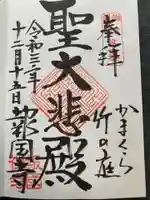 奉拝
かまくら
竹の庭
聖大悲殿
令和三年
十二月十五日
報国寺